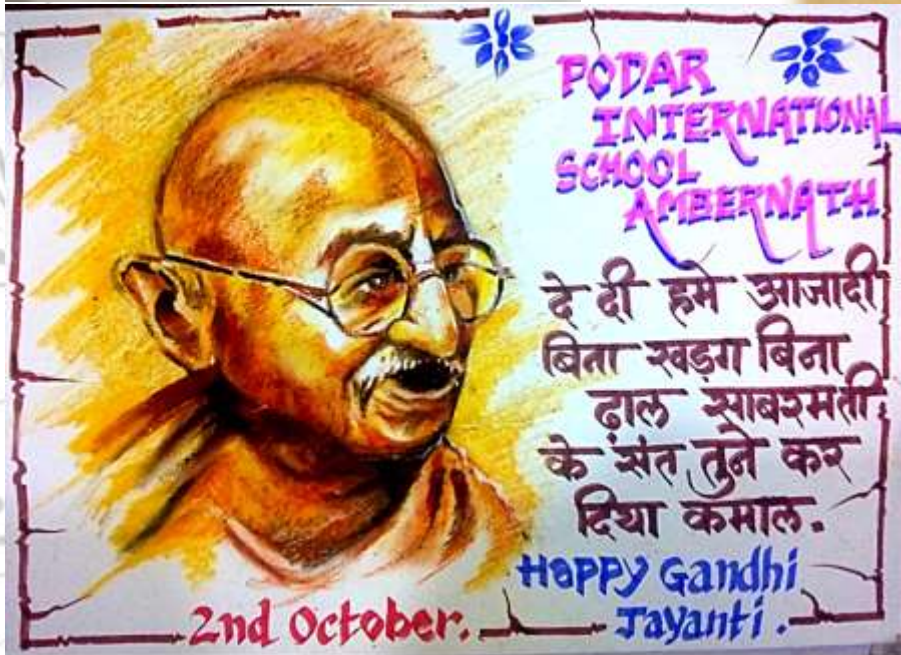 PODAR
INTERNATIONAL
SCHOOL
AMBERNATH
दे दी हमे आजादी
बिना खड़ग बिना
ढ़ाल साबरमती
के संत तुने कर
दिया कमाल.
Happy Gandhi
Jayanti.
2nd October.